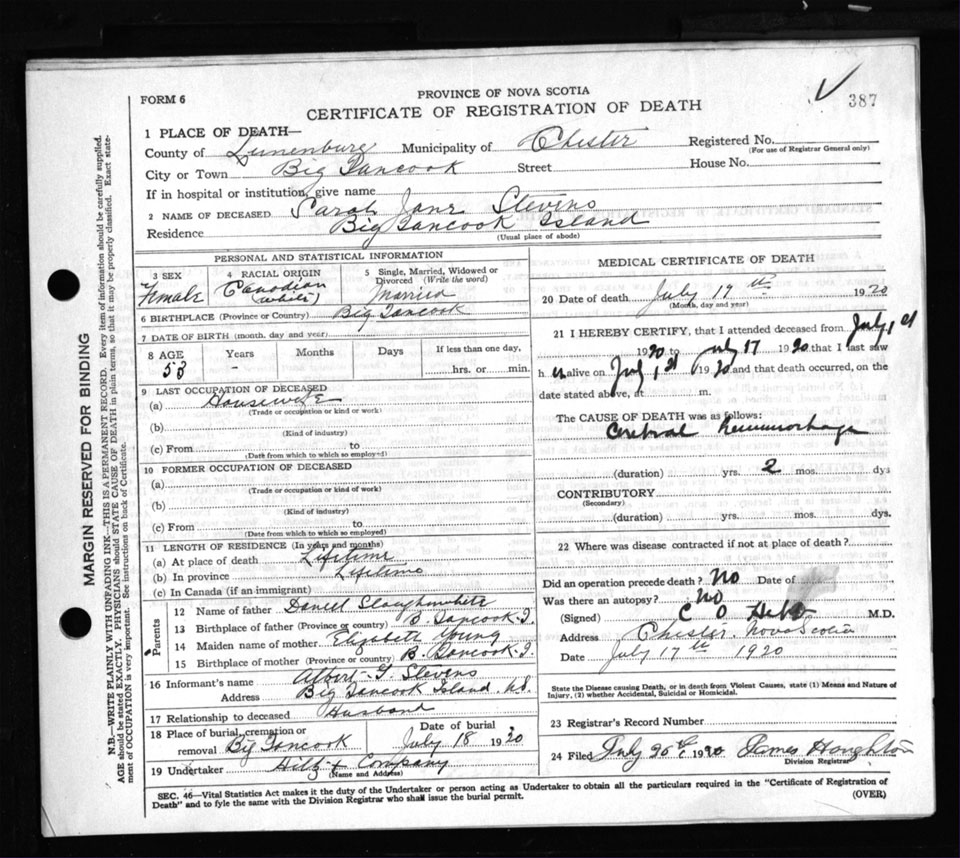 387
FORM 6
PROVINCE OF NOVA SCOTIA
CERTIFICATE OF REGISTRATION OF DEATH
1 PLACE OF DEATH—
County of Lunenburg Municipality of Chester Registered No.
(For use of Registrar General only)
City or Town Big Tancook Street House No.
If in hospital or institution, give name
2 NAME OF DECEASED Sarah Jane Stevens
Residence Big Tancook Island
(Usual place of abode)
PERSONAL AND STATISTICAL INFORMATION
3 SEX Female
4 RACIAL ORIGIN Canadian (white)
5 Single, Married, Widowed or Divorced (Write the word) Married
6 BIRTHPLACE (Province or Country) Big Tancook
7 DATE OF BIRTH (month, day and year)
8 AGE Years Months Days If less than one day,
53 - hrs. or min.
9 LAST OCCUPATION OF DECEASED
(a) Housewife
(Trade or occupation or kind or work)
(b)
(Kind of industry)
(c) From to
(Date from which to which so employed)
10 FORMER OCCUPATION OF DECEASED
(a)
(Trade or occupation or kind of work)
(b)
(Kind of industry)
(c) From to
(Date from which to which so employed)
11 LENGTH OF RESIDENCE (In years and months)
(a) At place of death Lifetime
(b) In province Lifetime
(c) In Canada (if an immigrant)
Parents
12 Name of father Daniel Slaughwhite
13 Birthplace of father (Province or country) B. Tancook I.
14 Maiden name of mother Elizabeth Young
15 Birthplace of mother (Province or country) B. Tancook I.
16 Informant's name Albert G. Stevens
Address Big Tancook Island. N.S.
17 Relationship to deceased Husband
18 Place of burial, cremation or removal Big Tancook
Date of burial July 18 1920
19 Undertaker Hiltz & Company
(Name and Address)
MEDICAL CERTIFICATE OF DEATH
20 Date of death July 17th 1920
(Month, day and year)
21 I HEREBY CERTIFY, that I attended deceased from July 1st
1920 to July 17 1920 that I last saw
her alive on July 1st 1920 and that death occurred, on the
date stated above, at m.
The CAUSE OF DEATH was as follows:
Cerebral hemmorhage
(duration) yrs. 2 mos. dys
CONTRIBUTORY
(Secondary)
(duration) yrs. mos. dys.
22 Where was disease contracted if not at place of death?
Did an operation precede death? No Date of
Was there an autopsy? No
(Signed) C O M.D.
Address Chester. Nova Scotia
Date July 17th 1920
State the Disease causing Death, or in death from Violent Causes, state (1) Means and Nature of
Injury, (2) whether Accidental, Suicidal or Homicidal.
23 Registrar's Record Number
24 Filed July 20th 1920 James Houghton
Division Registrar
SEC. 46—Vital Statistics Act makes it the duty of the Undertaker or person acting as Undertaker to obtain all the particulars required in the "Certificate of Registration of
Death" and to fyle the same with the Division Registrar who shall issue the burial permit.
(OVER)
MARGIN RESERVED FOR BINDING
N.B.—WRITE PLAINLY WITH UNFADING INK—THIS IS A PERMANENT RECORD. Every item of information should be carefully supplied.
AGE should be stated EXACTLY. PHYSICIANS should STATE CAUSE OF DEATH in plain terms, so that it may be properly classified. Exact state-
ment of OCCUPATION is very important. See instructions on back of Certificate.